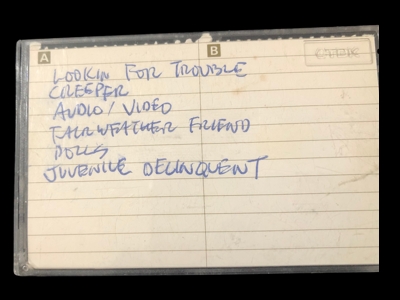 A B
LOOKIN FOR TROUBLE
CREEPER
AUDIO/VIDEO
FAIRWEATHER FRIEND
DOLLS
JUVENILE DELINQUENT